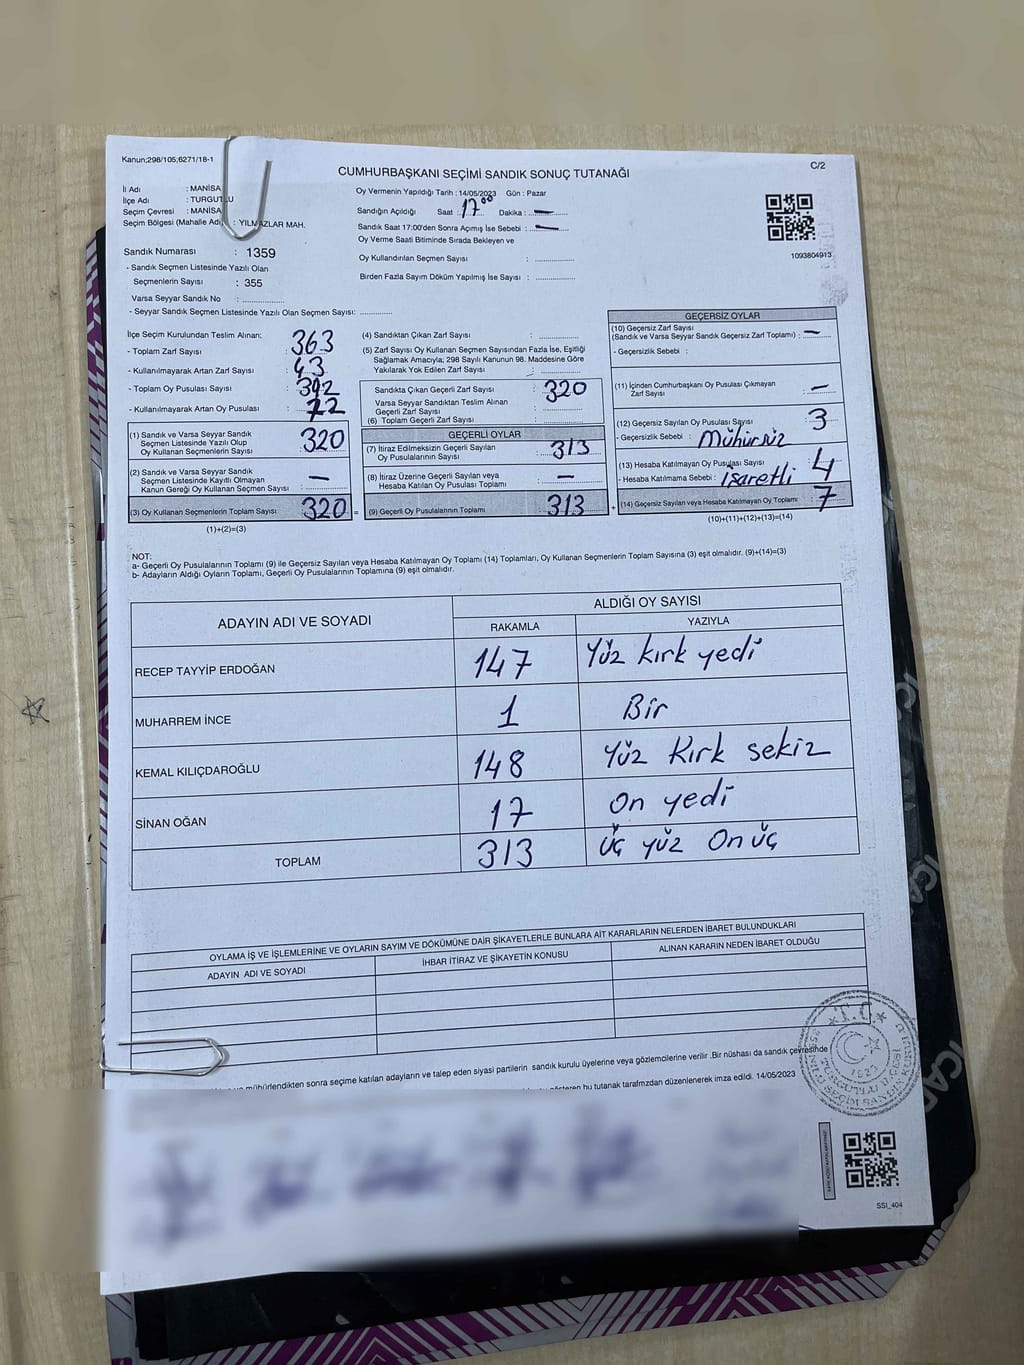 Kanun;298/105,6271/18-1
C/2
CUMHURBAŞKANI SEÇİMİ SANDIK SONUÇ TUTANAĞI
İl Adı : MANİSA
İlçe Adı : TURGUTLU
Seçim Çevresi : MANİSA
Seçim Bölgesi (Mahalle Adı) : YILMAZLAR MAH.
Oy Vermenin Yapıldığı Tarih : 14/05/2023 Gün : Pazar
Sandığın Açıldığı Saat : 17⁰⁰ Dakika : —
Sandık Saat 17:00'den Sonra Açımış İse Sebebi : —
Oy Verme Saati Bitiminde Sırada Bekleyen ve
Oy Kullandırılan Seçmen Sayısı :
Birden Fazla Sayım Döküm Yapılmış İse Sayısı :
1093804913
Sandık Numarası : 1359
- Sandık Seçmen Listesinde Yazılı Olan
Seçmenlerin Sayısı : 355
Varsa Seyyar Sandık No :
- Seyyar Sandık Seçmen Listesinde Yazılı Olan Seçmen Sayısı:
İlçe Seçim Kurulundan Teslim Alınan;
- Toplam Zarf Sayısı : 363
- Kullanılmayarak Artan Zarf Sayısı : 43
- Toplam Oy Pusulası Sayısı :
- Kullanılmayarak Artan Oy Pusulası :
(1) Sandık ve Varsa Seyyar Sandık
Seçmen Listesinde Yazılı Olup
Oy Kullanan Seçmenlerin Sayısı : 320
(2) Sandık ve Varsa Seyyar Sandık
Seçmen Listesinde Kayıtlı Olmayan
Kanun Gereği Oy Kullanan Seçmen Sayısı : —
(3) Oy Kullanan Seçmenlerin Toplam Sayısı : 320 =
(1)+(2)=(3)
(4) Sandıktan Çıkan Zarf Sayısı :
(5) Zarf Sayısı Oy Kullanan Seçmen Sayısından Fazla İse, Eşitliği
Sağlamak Amacıyla; 298 Sayılı Kanunun 98. Maddesine Göre
Yakılarak Yok Edilen Zarf Sayısı :
Sandıkta Çıkan Geçerli Zarf Sayısı : 320
Varsa Seyyar Sandıktan Teslim Alınan
Geçerli Zarf Sayısı :
(6) Toplam Geçerli Zarf Sayısı :
GEÇERLİ OYLAR
(7) İtiraz Edilmeksizin Geçerli Sayılan
Oy Pusulalarının Sayısı : 313
(8) İtiraz Üzerine Geçerli Sayılan veya
Hesaba Katılan Oy Pusulası Toplamı : —
(9) Geçerli Oy Pusulalarının Toplamı : 313 +
GEÇERSİZ OYLAR
(10) Geçersiz Zarf Sayısı
(Sandık ve Varsa Seyyar Sandık Geçersiz Zarf Toplamı) : —
- Geçersizlik Sebebi :
(11) İçinden Cumhurbaşkanı Oy Pusulası Çıkmayan
Zarf Sayısı : —
(12) Geçersiz Sayılan Oy Pusulası Sayısı : 3
- Geçersizlik Sebebi : Mühürsüz
(13) Hesaba Katılmayan Oy Pusulası Sayısı : 4
- Hesaba Katılmama Sebebi : İşaretli
(14) Geçersiz Sayılan veya Hesaba Katılmayan Oy Toplamı : 7
(10)+(11)+(12)+(13)=(14)
NOT:
a- Geçerli Oy Pusulalarının Toplamı (9) ile Geçersiz Sayılan veya Hesaba Katılmayan Oy Toplamı (14) Toplamları, Oy Kullanan Seçmenlerin Toplam Sayısına (3) eşit olmalıdır. (9)+(14)=(3)
b- Adayların Aldığı Oyların Toplamı, Geçerli Oy Pusulalarının Toplamına (9) eşit olmalıdır.
ADAYIN ADI VE SOYADI
ALDIĞI OY SAYISI
RAKAMLA YAZIYLA
RECEP TAYYİP ERDOĞAN 147 Yüz kırk yedi
MUHARREM İNCE 1 Bir
KEMAL KILIÇDAROĞLU 148 Yüz Kırk sekiz
SİNAN OĞAN 17 On yedi
TOPLAM 313 Üç yüz On üç
OYLAMA İŞ VE İŞLEMLERİNE VE OYLARIN SAYIM VE DÖKÜMÜNE DAİR ŞİKAYETLERLE BUNLARA AİT KARARLARIN NELERDEN İBARET BULUNDUKLARI
ADAYIN ADI VE SOYADI İHBAR İTİRAZ VE ŞİKAYETİN KONUSU ALINAN KARARIN NEDEN İBARET OLDUĞU
mühürlendikten sonra seçime katılan adayların ve talep eden siyasi partilerin sandık kurulu üyelerine veya gözlemcilerine verilir .Bir nüshası da sandık çevresinde
gösteren bu tutanak tarafımzdan düzenlenerek imza edildi. 14/05/2023
T.C.
1923
SSI_404